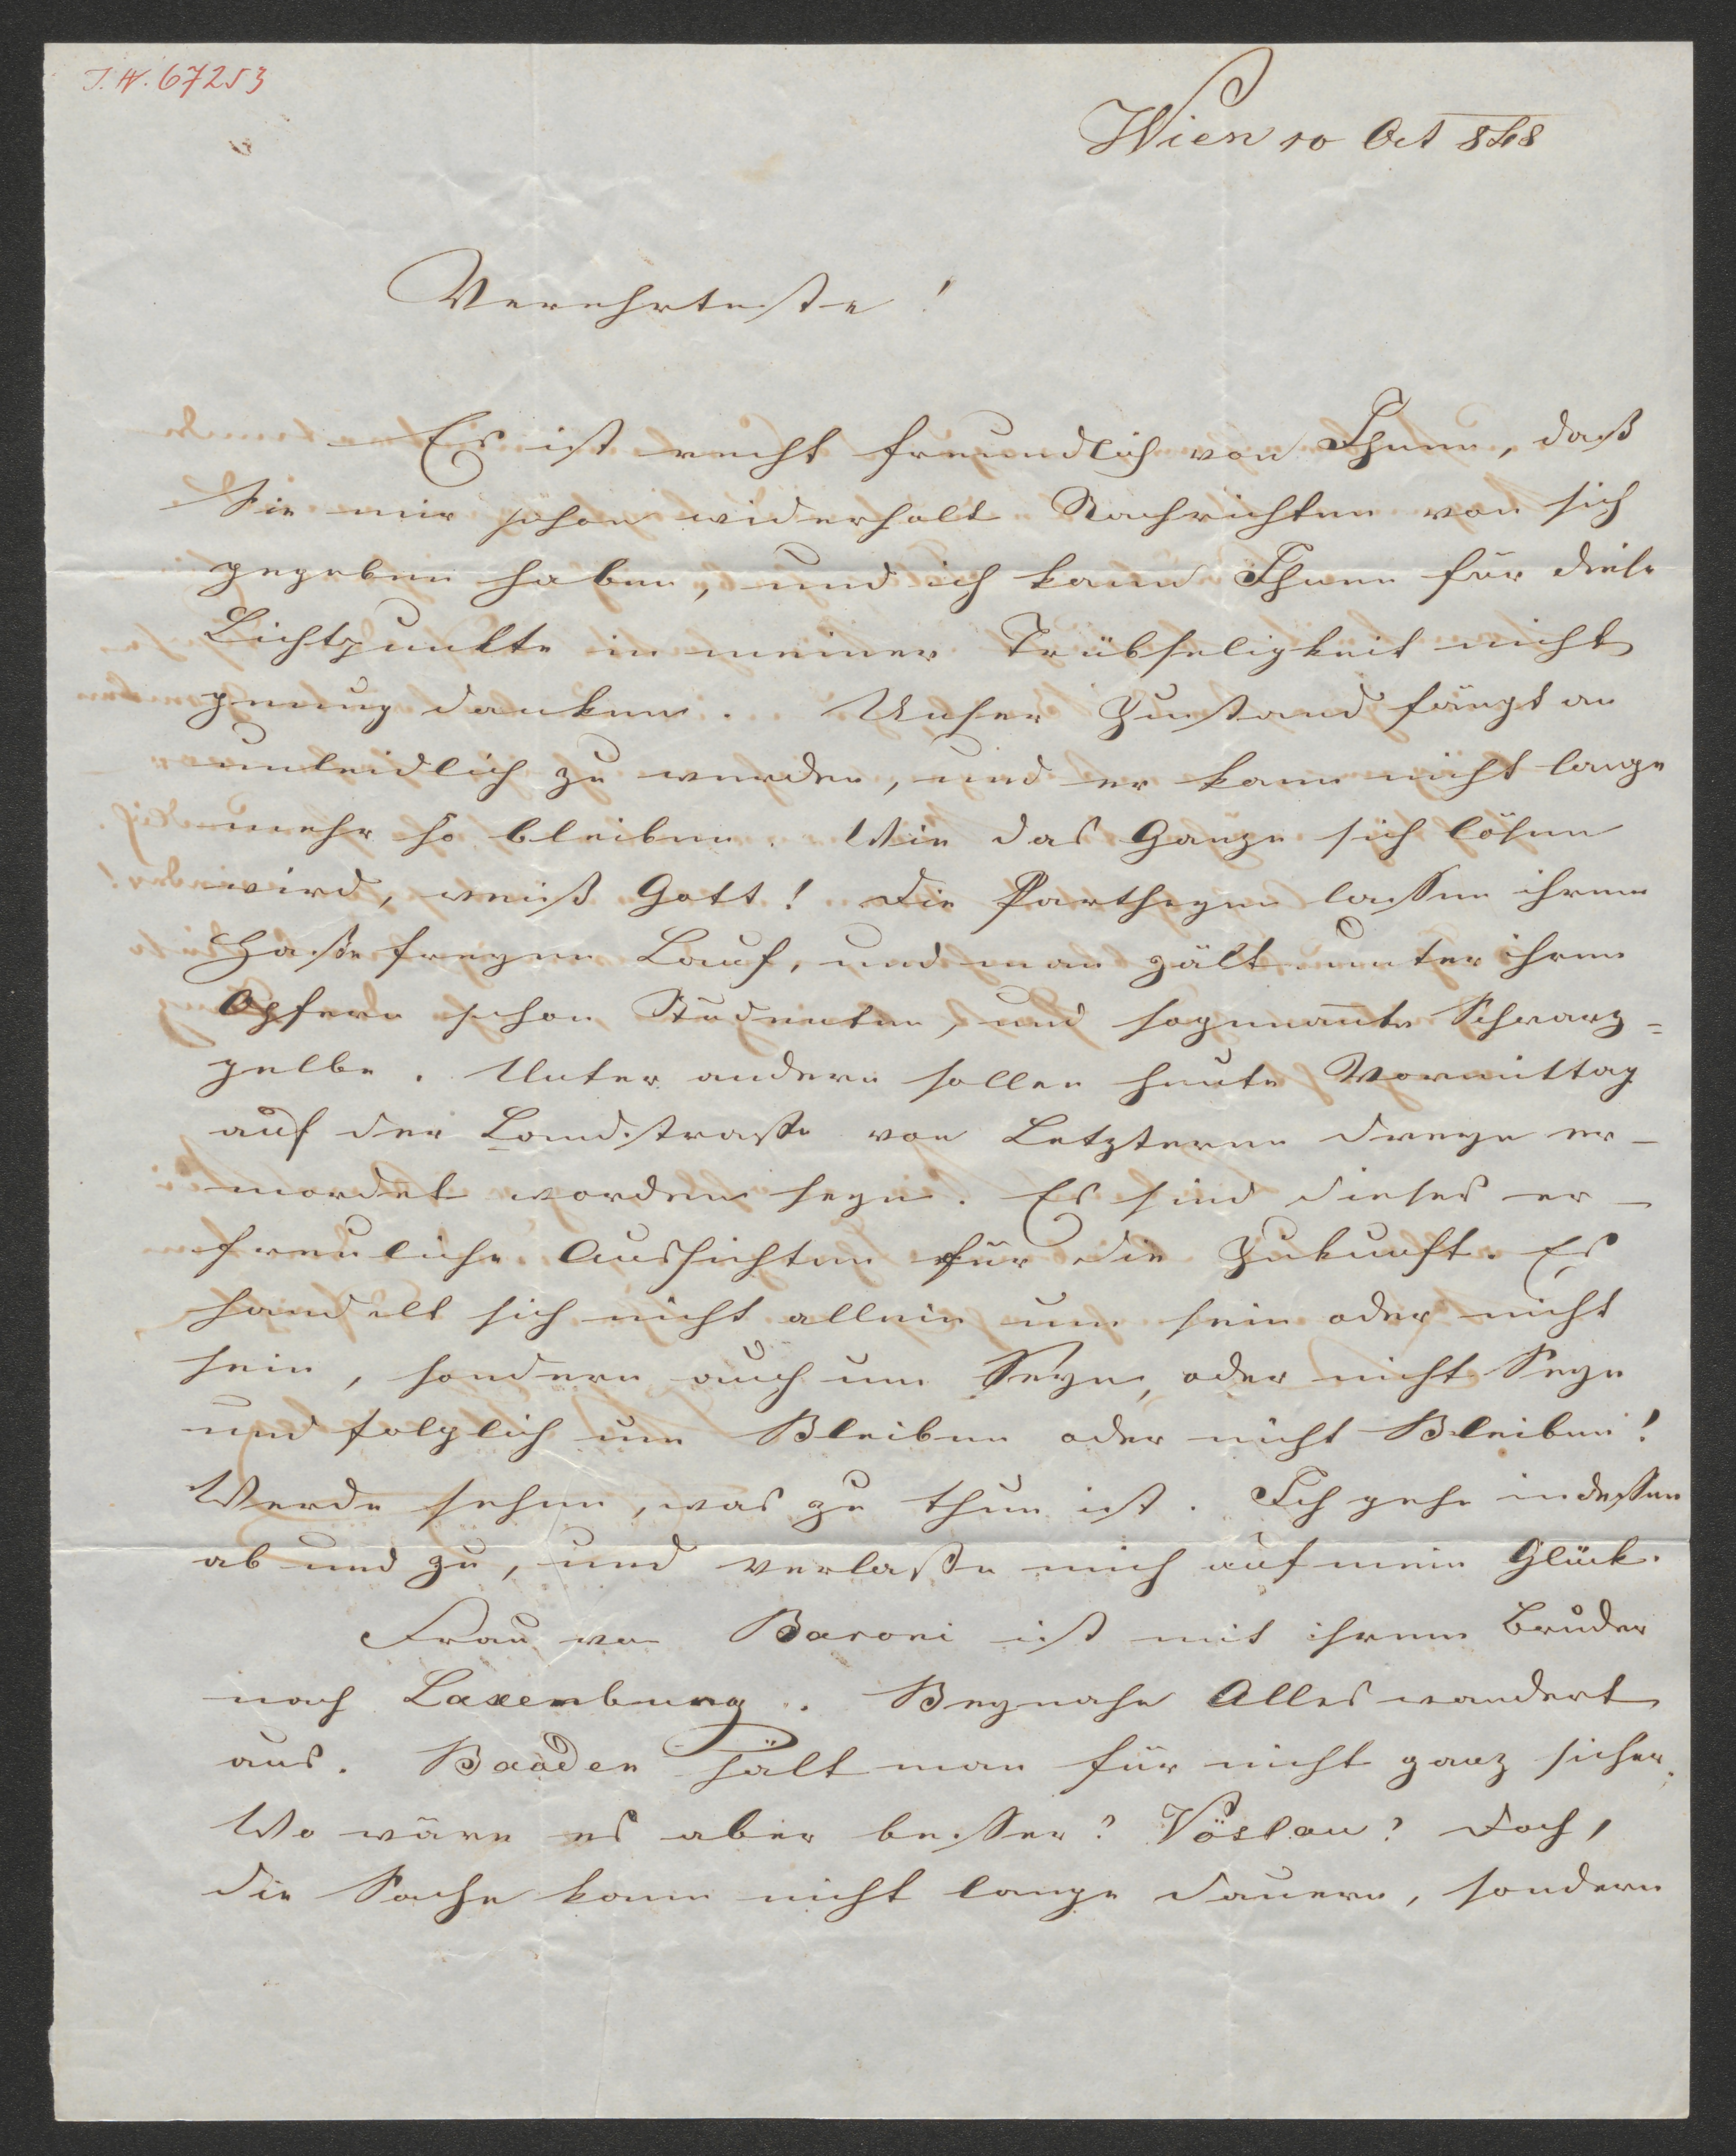 I.N. 67253
Wien 10 Oct 848
Verehrteste!
Es ist recht freundlich von Ihnen, daß
Sie mir schon widerholt Nachrichten von sich
gegeben haben, und ich kann Ihnen für diese
Lichtpunkte in meiner Trübseligkeit nicht
genug danken. Unser Zustand fängt an
unleidlich zu werden, und er kann nicht lange
mehr so bleiben. Wie das Ganze sich lösen
wird, weiß Gott! Die Partheyen lassen ihrem
Hasse freyen Lauf, und man zält unter ihren
Opfern schon Studenten, und sogenannte Schwarz=
gelbe. Unter andern sollen heute Vormittag
auf der Landstrasse von Letzteren dreye er-
mordet worden seyn. Es sind dieses er-
freuliche Aussichten für die Zukunft. Es
handelt sich nicht allein um sein oder nicht
sein, sondern auch um Seyn, oder nicht Seyn
und folglich um Bleiben oder nicht Bleiben!
Werde sehen, was zu thun ist. Ich gehe indessen
ab und zu, und verlasse mich auf mein Glück.
Frau von Baroni ist mit ihrem Bruder
nach Laxenburg. Beynahe Alles wandert
aus. Baaden hält man für nicht ganz sicher.
Wo wäre es aber besser? Vöslau? Doch,
die Sache kann nicht lange dauern, sondern